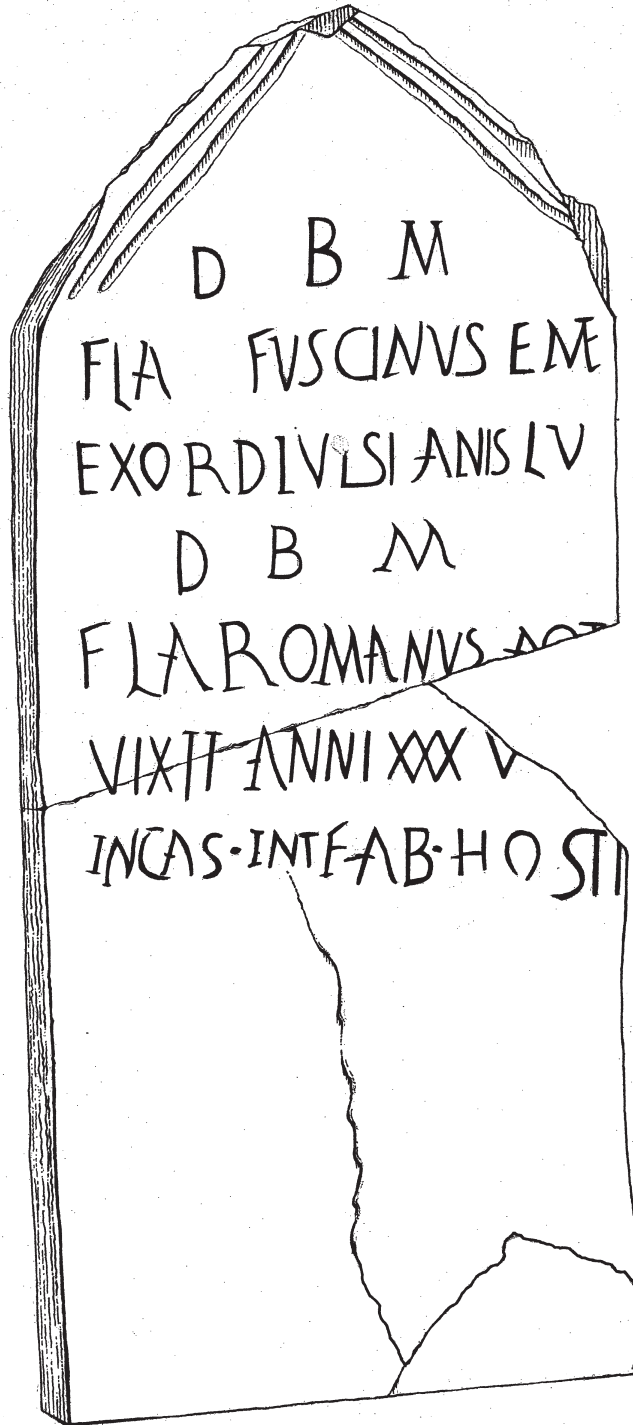 D B M
FLA FUSCINVS EME
EXORDIVLSIANISLV
D B M
FLAROMANVS ACT
VIXIT ANNI XXXV
INCAS·INTFAB·HOSTI